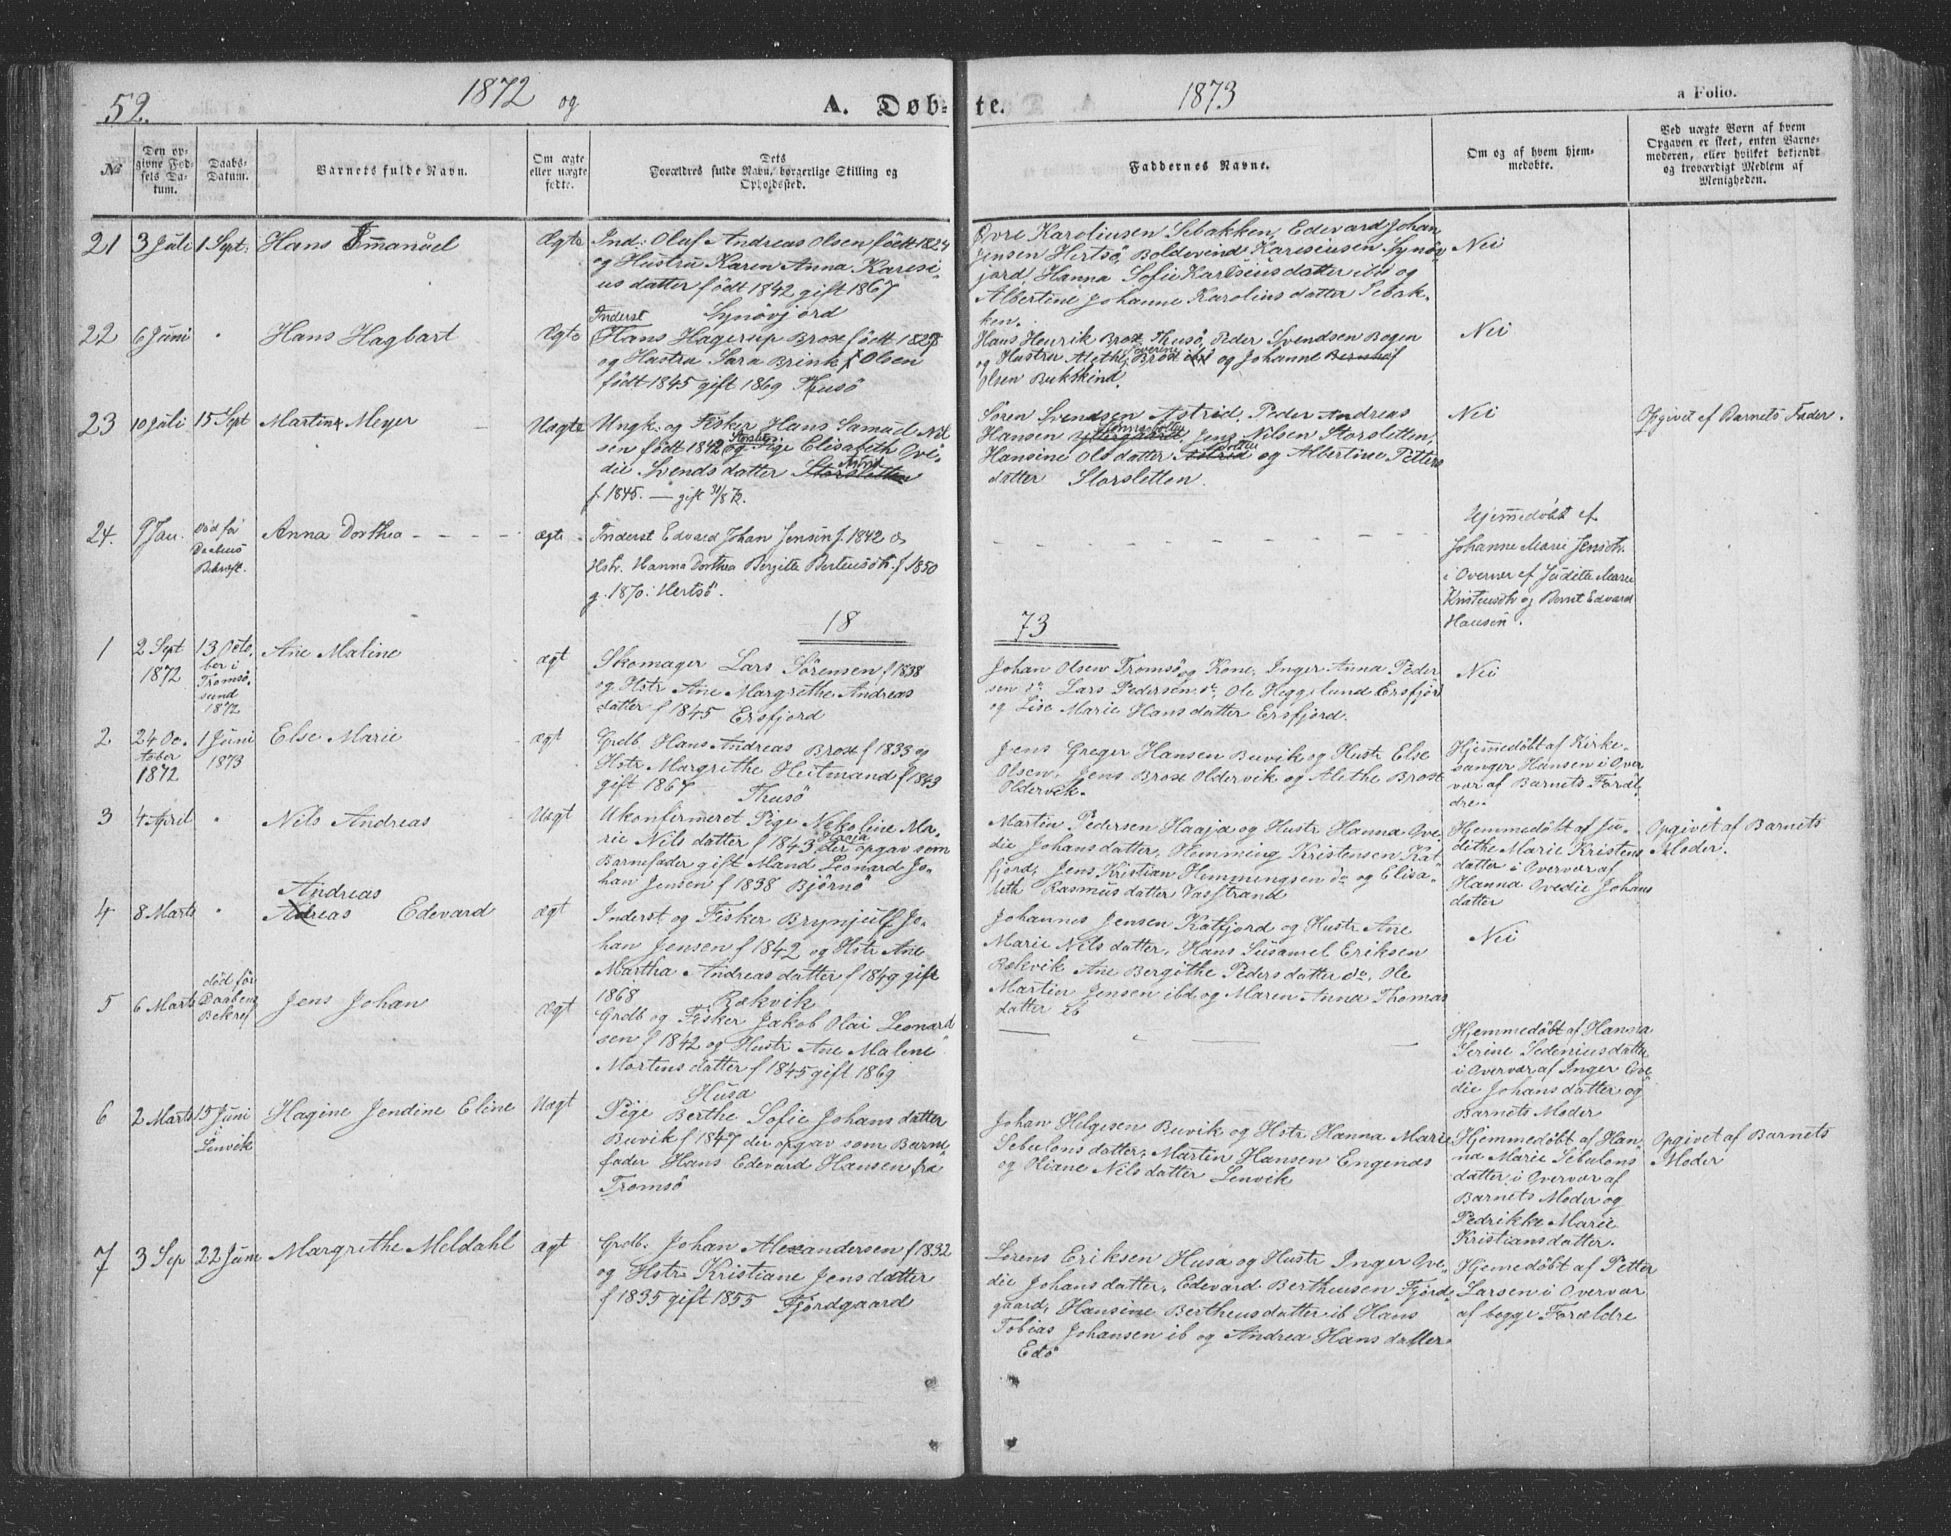 52.
1872 og
A. Døb-
te.
1873
a Folio.
№
Den op-
givne Fød-
sels Da-
tum.
Daabs-
Datum.
Barnets fulde Navn.
Om ægte
eller uægte
fødte.
Dets
Forældres fulde Navn, borgerlige Stilling og
Opholdssted.
Faddernes Navne.
Om og af hvem hjem-
medøbte.
Ved uægte Born af hvem
Opgaven er skeet, enten Barne-
moderen, eller hvilket bekjendt
og troværdigt Medlem af
Menigheden.
21 3 Juli 1 Spt. Hans Emanuel Ægte
Ind: Oluf Andreas Olsen født 1824
og Hustru Karen Anna Karesi-
us datter født 1842 gift 1867
Synøvjord
Øvre Karoliusen Sebakken, Edevard Johan
Jensen Hertsö, Boldevind Karesiusen Synöv
jord, Hanna Sofie Karesiusdatter ibd og
Albertine Johanne Karolius datter Sebak-
ken.
Nei
22 6 Juni " Hans Hagbart Ægte
Inderst
Hans Hagerup Brox født 1828
og Hustru Sara Brink f Olsen
født 1845 gift 1869 Thusö
Hans Henrik Brox Thusö, Peder Svendsen Bogen
og Hustru Alethe Severine Brox ibd og Johanne
Olsen Bukskind.
Nei
23 10 Juli 15 Spt Martin Meyer Uægte
Ungk. og Fisker Hans Samuel Nil
sen født 1842 og Pige Elisabeth Ove-
die Svends datter Storsletten
f. 1845. — gift 31/8 72.
Sören Svendsen Astrid, Peder Andreas
Hansen, Jens Nilsen Storsletten,
Hansine Ols datter Astrid og Albertine Petters
datter Storsletten.
Nei
Opgivet af Barnets Fader.
24. 9 Jan. død før
Daabens
Bekræft.
Anna Dorthea - - - - ægte -
Inderst Edvard Johan Jensen f. 1842 &
Hstr. Hanna Dorthea Bergitte Bertheusdtr. f 1850
g. 1870. Hertsö.
Hjemmedøbt af
Johanne Marie Jensdtr.
i Overvær af Judithe Marie
Kristensdtr og Bernt Edvard
Hansen.
18
73
1 2 Sept
1872
13 Octo,
ber i
Tromsö,
sund
1872
Ane Maline ægt
Skomager Lars Sörensen f 1838
og Hstr Ane Margrethe Andreas
datter f 1845 Ersfjord
Johan Olsen Tromsö og Kone, Inger Anna Peder
sen do Lars Pedersen do, Ole Heggelund Ersfjor
og Lise Marie Hans datter Ersfjord.
Nei
2 24 Oc.
tober
1872
1 Juni
1873
Else Marie ægt
Grdb. Hans Andreas Brox f 1833 og
Hstr Margrethe Heitmand f 1843
gift 1867 Thusö
Jens Greger Hansen Buvik og Hustr Else
Olsen, Jens Brox Oldervik og Alethe Brox
Oldervik.
Hjemmedøbt af Kirke-
sanger Hansen i Over
vær af Barnets Foræl
dre.
3 4 April " Nils Andreas Uægt
Ukonfirmeret Pige Nekoline Ma-
rie Nils datter f 1843 der opgav som
Barnefader gift Mand Leonard Jo-
han Jensen f 1838 Björnö
Martin Pedersen Haaja og Hustr Hanna Ove-
die Johans datter, Hemming Kristensen Kat
fjord, Jens Kristian Hemmingsen do og Elisa-
beth Rasmus datter Vasstrand
Hjemmedøbt af Ju-
dithe Marie Kristens
datter i Overvær af
Hanna Ovedie Johans
datter
Opgivet af Barnets
Moder.
4 8 Marts " Andreas
Adreas Edevard ægt
Inderst og Fisker Brynjulf Jo-
han Jensen f 1842 og Hstr Ane
Martha Andreas datter f 1849 gift
1868 Rækvik
Johannes Jensen Katfjord og Hustr Ane
Marie Nils datter, Hans Susamel Eriksen
Rækvik Ane Bergithe Peders datter do, Ole
Martin Jensen ibd og Maren Anna Thomas
datter ib
Nei
5 6 Marts død før
Daabens
Bekref
Jens Johan ægt
Grdb og Fisker Jakob Olai Leonard
sen f 1842 og Hustr Ane Malene
Mortens datter f 1845 gift 1869
Husa
Hjemmedøbt af Hansa
Serine Sedeniusdatter
i Overvær af Inger Ove
die Johans datter og
Barnets Moder
6 2 Marts 15 Juni
i
Lenvik
Hagine Jendine Eline Uægt
Pige Berthe Sofie Johans datter
Buvik f 1847 der opgav som Barne-
fader Hans Edevard Hansen fra
Tromsö
Johan Helgesen Buvik og Hstr Hanna Marie
Sebulons datter, Martin Hansen Engenæs
og Oliane Nils datter Lenvik
Hjemmedøbt af Han-
na Marie Sebulons
datter i Overvær af
Barnets Moder og
Pedrikke Marie
Kristiansdatter.
Opgivet af Barnets
Moder
7 3 Sep 22 Juni Margrethe Meldahl ægt
Grdb. Johan Alexandersen f 1832
og Hstr Kristiane Jens datter
f 1835 gift 1855 Fjordgaard
Lorens Eriksen Husa og Hustr Inger Ove-
die Johans datter, Edevard Bertheusen Fjord-
gaard, Hansine Bertheus datter ib Hans
Tobias Johansen ib og Andrea Hans datter
Edö
Hjemedøbt af Petter
Larsen i Overvær
af begge Forældre